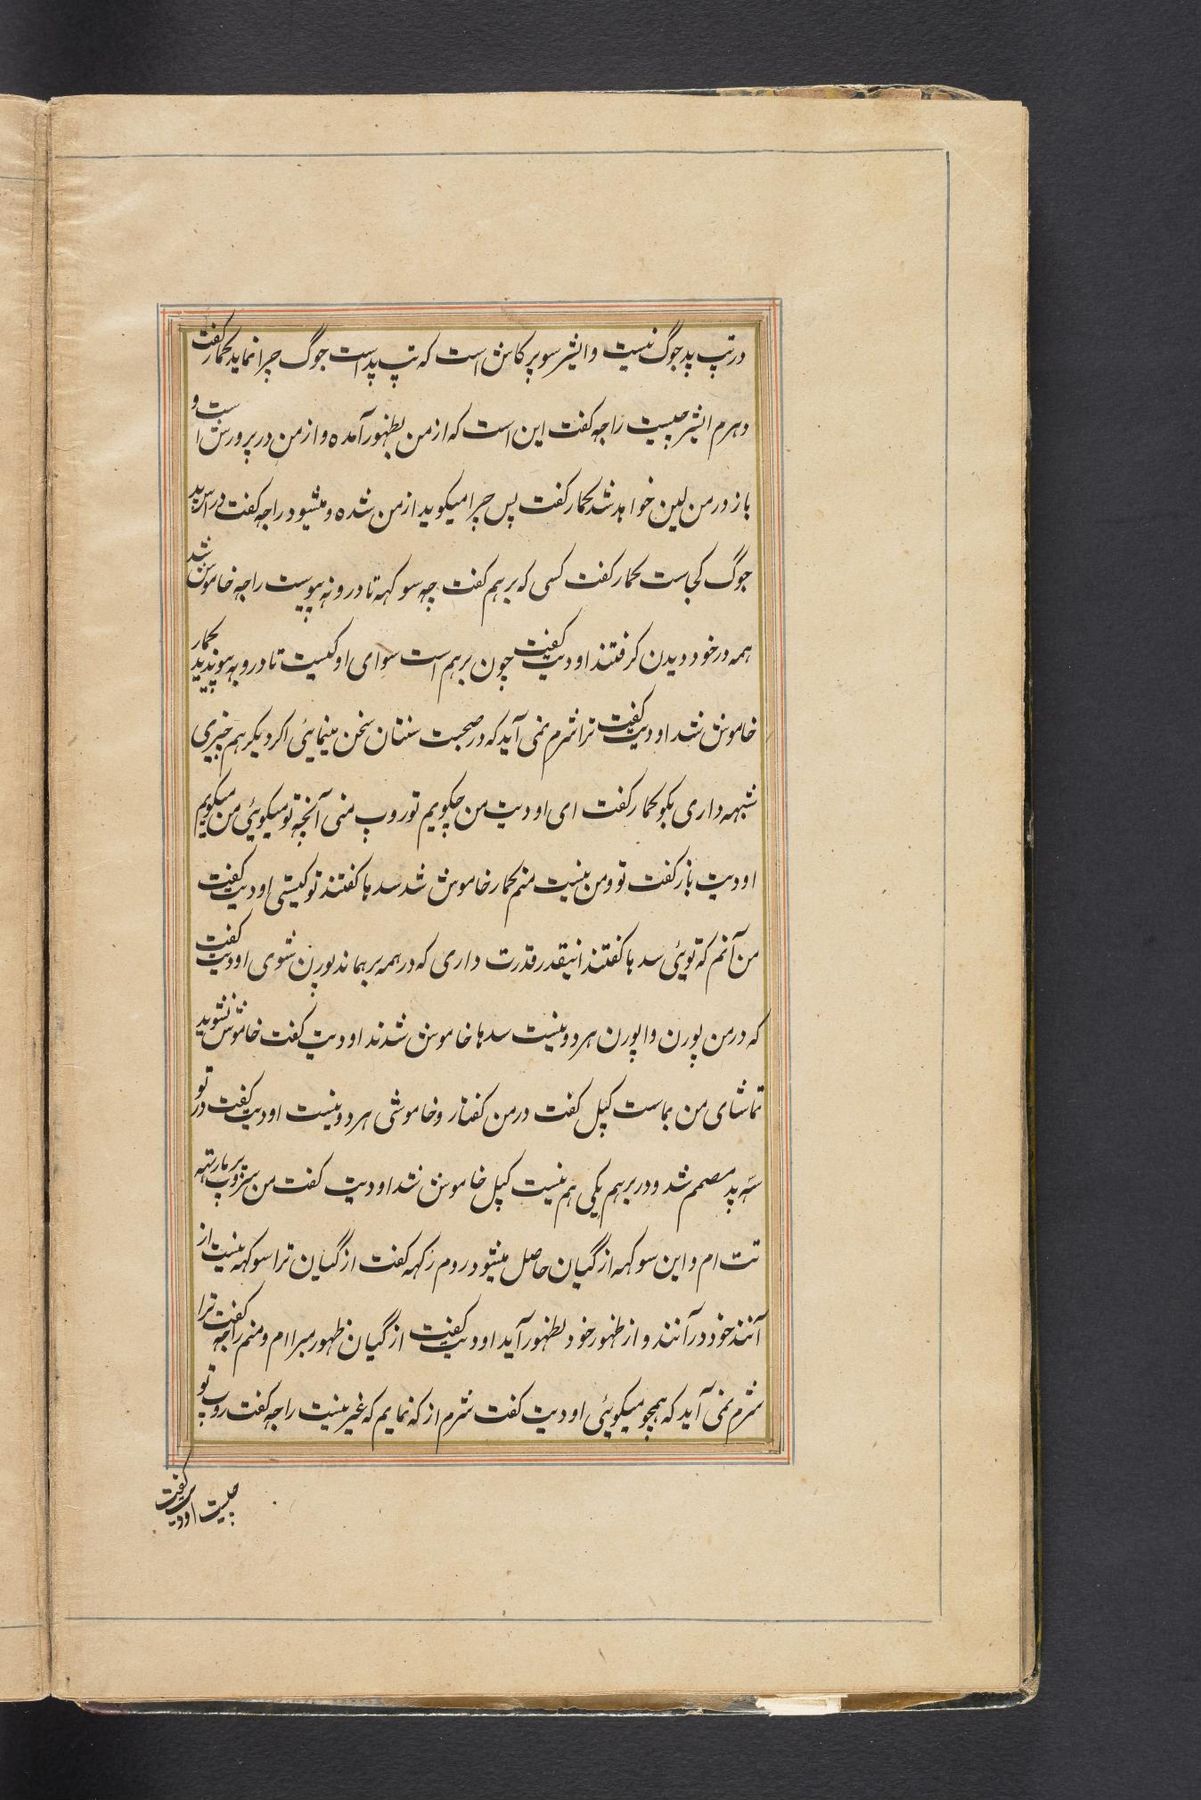 در تپ پد جوگ نیست و ایشر سوپرکاش است که تپ پد است جوگ چرا نماید کحمار گفت
دهرم ایشر چیست راجه گفت این است که از من بظهور آمده و از من در پرورش است و
باز در من لین خواهد شد کحمار گفت پس چرا میگوید از من شده و میشود راجه گفت در اس پد
جوگ کجاست کحمار گفت کسی که برهم گفت چه سوکهه تا در ونه پیوست راجه خاموش شد
همه در خود دیدن گرفتند اودیت گفت چون برهم است سوای او کیست تا در و به پیوندید کحمار
خاموش شد اودیت گفت ترا شرم نمی آید که در صحبت سنتان سخن مینمایئ اگر دیگر هم چیزی
شبهه داری بگو کحمار گفت ای اودیت من چگویم تو روپ منی آنچه تو میگویئ من میگویم
اودیت باز گفت تو و من نیست منم کحمار خاموش شد سدها گفتند تو کیستی اودیت گفت
من آنم که تویئ سدها گفتند اینقدر قدرت داری که در همه برهماند پورن شوی اودیت گفت
که در من پورن و اپورن هر دو نیست سدها خاموش شدند اودیت گفت خاموش نشوید
تماشای من بماست کپل گفت در من گفتار و خاموشی هر دو نیست اودیت گفت در تو
سه پد مصمم شد و در برهم یکی هم نیست کپل خاموش شد اودیت گفت من سروپ پرمارتهه
تت ام و این سوکهه از گیان حاصل میشود روم رکهه گفت از گیان ترا سوکهه نیست از
آنند خود در آنند و از ظهور خود بظهور آید اودیت گفت از گیان ظهور مبرا ام و منم راجه گفت ترا
شرم نمی آید که همچو میگویئ اودیت گفت شرم از که نمایم که غیر نیست راجه گفت روپ تو
چیست اودیت گفت